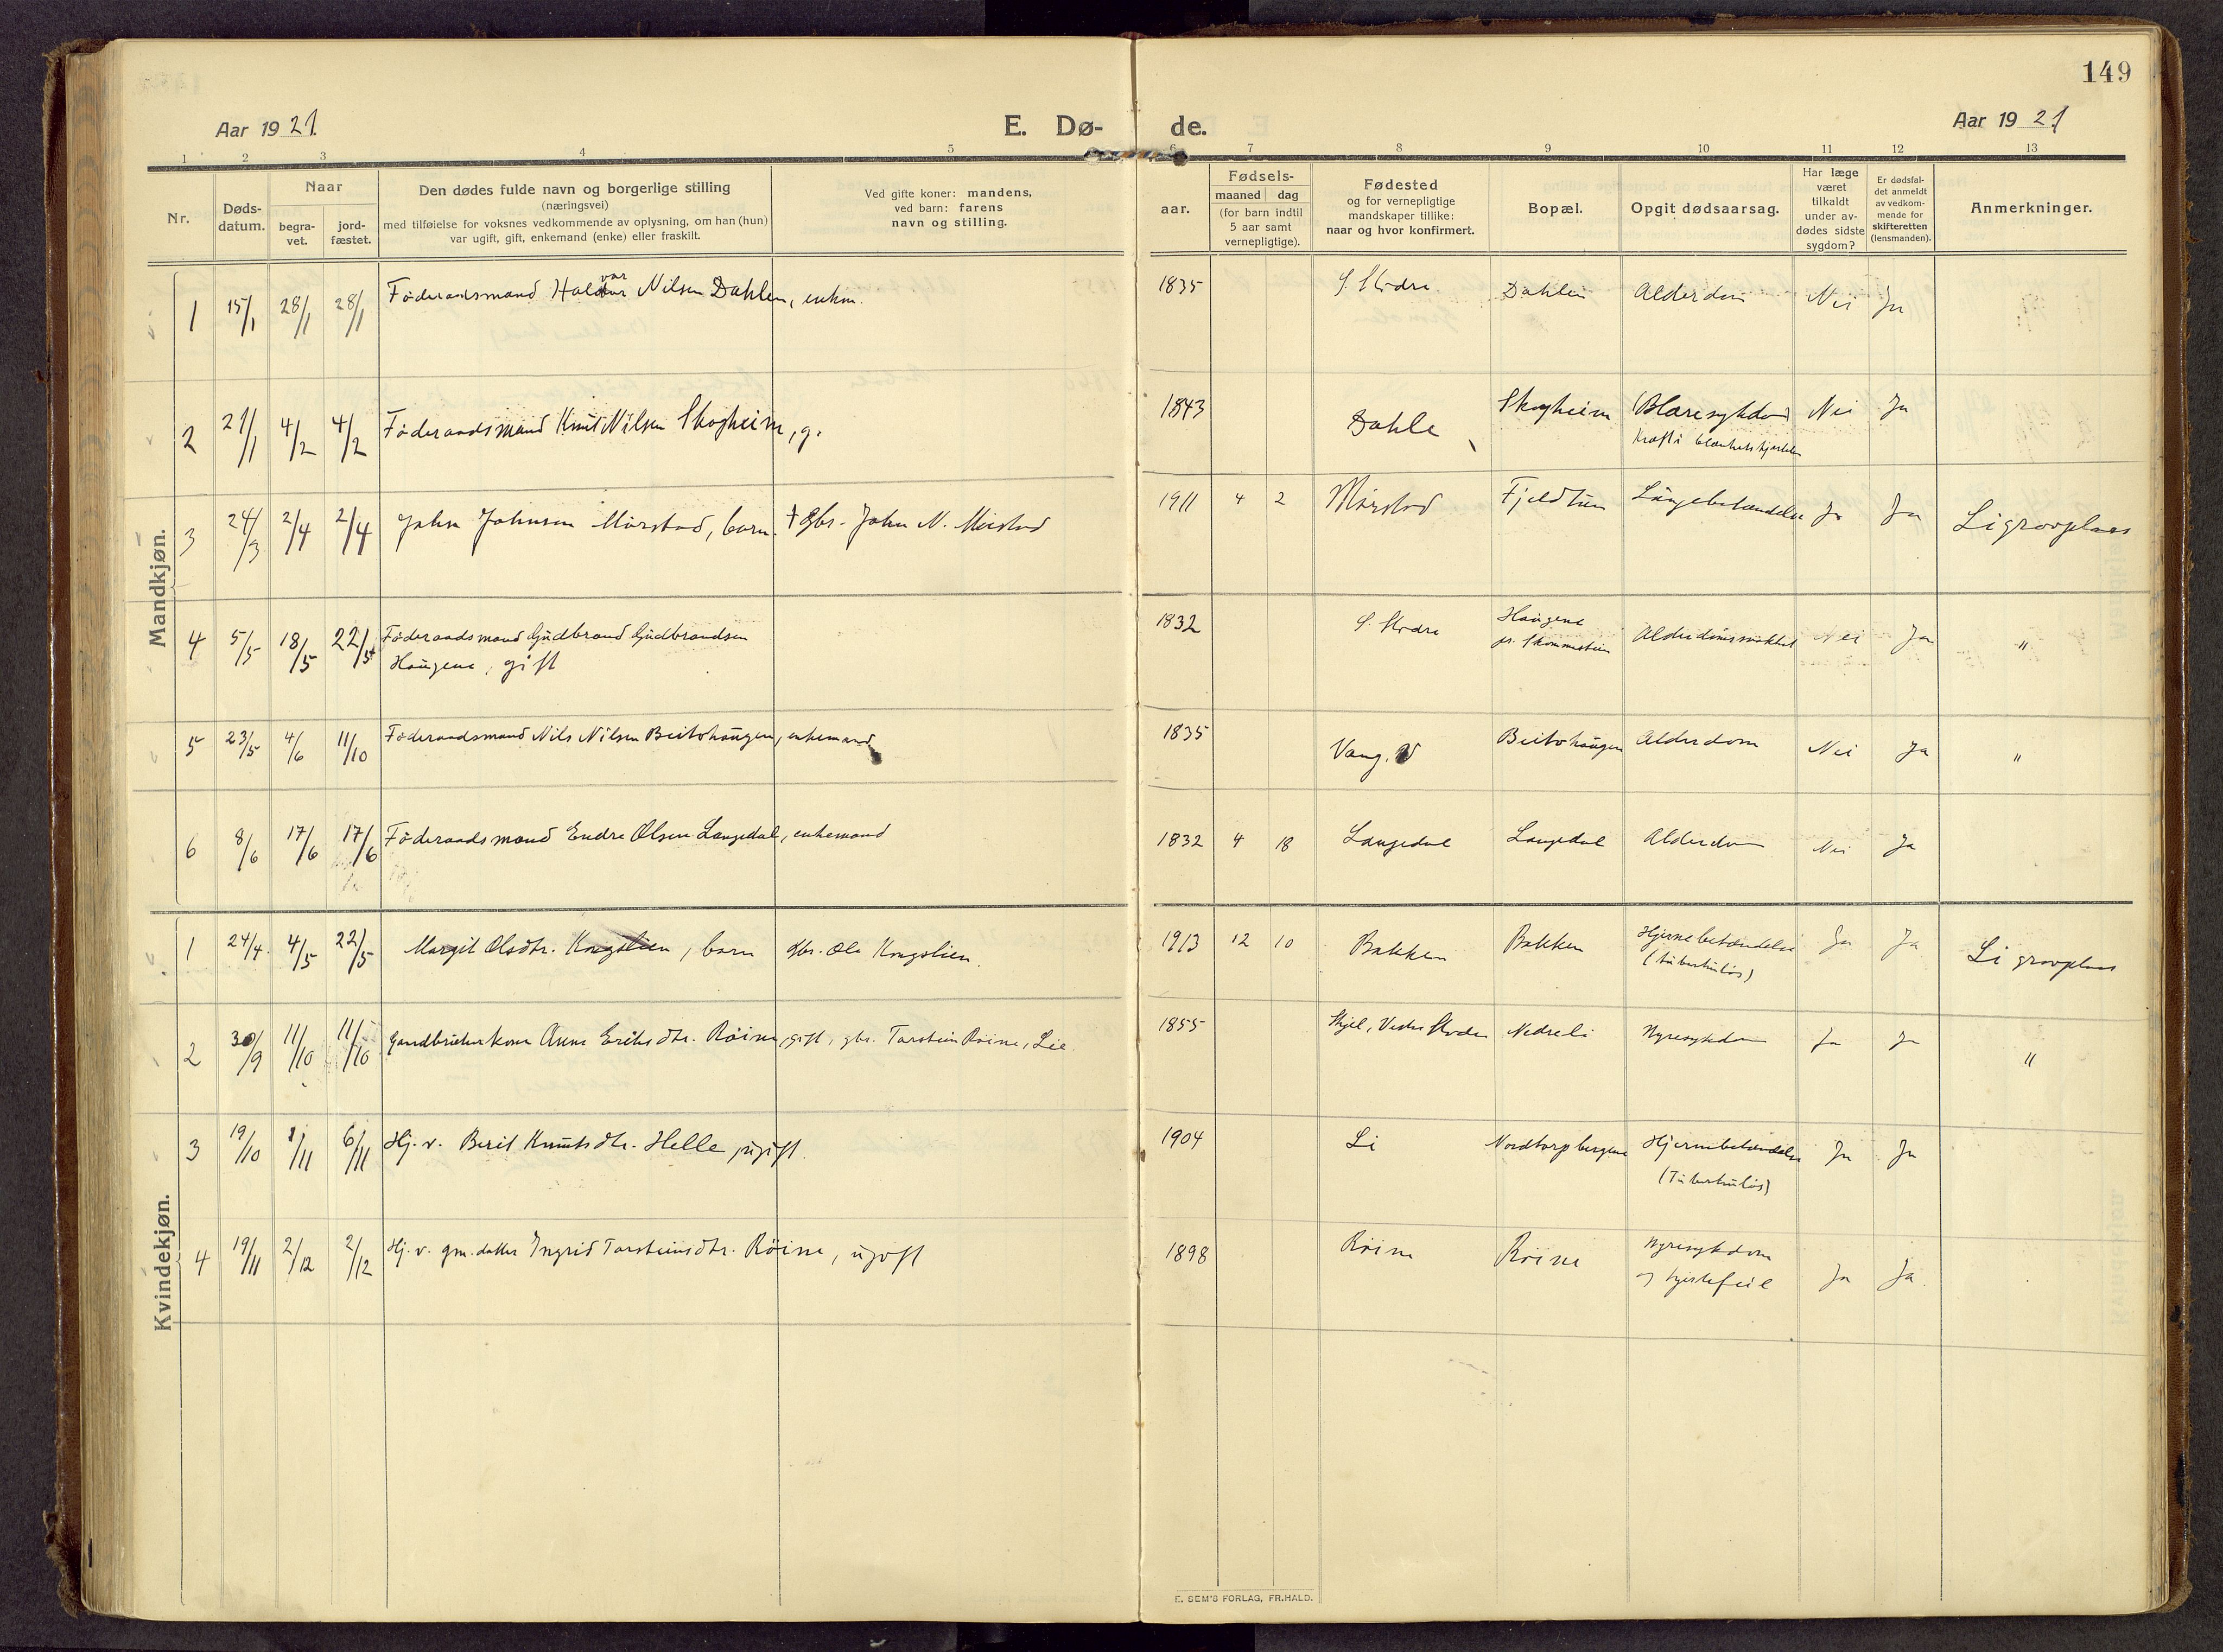 149
Aar 1921.
E. Dø-
de.
Aar 1921
1 2 3 4 5 6 7 8 9 10 11 12 13
Nr.
Døds-
datum.
Naar
begra-
vet.
jord-
fæstet.
Den dødes fulde navn og borgerlige stilling
(næringsvei)
med tilføielse for voksnes vedkommende av oplysning, om han (hun)
var ugift, gift, enkemand (enke) eller fraskilt.
Ved gifte koner: mandens,
ved barn: farens
navn og stilling.
aar.
Fødsels-
maaned dag
(for barn indtil
5 aar samt
vernepligtige).
Fødested
og for vernepligtige
mandskaper tillike:
naar og hvor konfirmert.
Bopæl.
Opgit dødsaarsag.
Har læge
været
tilkaldt
under av-
dødes sidste
sygdom?
Er dødsfal-
det anmeldt
av vedkom-
mende for
skifteretten
(lensmanden).
Anmerkninger.
Mandkjøn.
1 15/1 28/1 28/1 Föderaadsmand Halvar Nilsen Dahlen, enkem. 1835 S. Slidre Dahlen Alderdom Nei Ja
2 21/1 4/2 4/2 Föderaadsmand Knut Nilsen Skogheim, g. 1843 Dahle Skogheim (Blæresykdom) Nei Ja
Kræft i blærehalskjertelen
3 24/3 2/4 2/4 John Johnsen Mörstad, barn. Gbr. John N. Mörstad 1911 4 2 Mörstad Fjeldtun Lungebetændelse Ja Ja Li gravplass
4 5/5 18/5 22/5 Föderaadsmand Gudbrand Gudbrandsen
Haugene, gift 1832 S. Slidre Haugene
pr. Skammestein Alderdomssvakhet Nei Ja "
5 23/5 4/6 11/10 Föderaadsmand Nils Nilsen Beitohaugen, enkemand 1835 Vang. V Beitohaugen Alderdom Nei Ja "
6 8/6 17/6 17/6 Föderaadsmand Endre Olsen Langedal, enkemand 1832 4 18 Langedal Langedal Alderdom Nei Ja
Kvindekjøn.
1 24/4. 4/5 22/5 Margit Olsdtr. Kongslien, barn Gbr. Ola Kongslien. 1913 12 10 Bakken Bakken Hjernebetændelse Ja Ja Li gravplass
(tuberkulös)
2 30/9 11/10 11/10 Gaardbrukerkone Anne Eriksdtr. Röine, gift, gbr. Tarstein Röine, Lie. 1855 Skjel, Vestre Slidre Nedreli Nyresykdom Ja Ja "
3 19/10 1/11 6/11 Hj. v. Berit Knutsdtr. Helle, ugift. 1904 Li Nordtorpbergene Hjernebetændelse Ja Ja
(Tuberkulös)
4 19/11 2/12 2/12 Hj. v. gm. datter Ingrid Tarsteinsdtr. Röine, ugift 1898 Röine Röine Nyresykdom
og hjertefeil Ja Ja.
E. SEM'S FORLAG, FR.HALD.